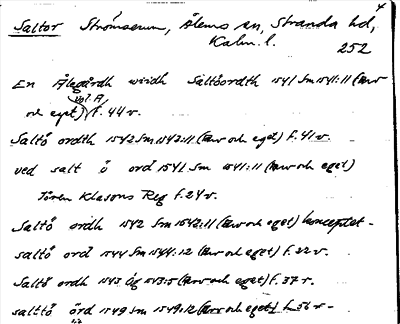 Saltor Strömserum, Ålems sn, Stranda hd, 4
Kalm. l.
252
En Ålagårdh widh Saltöordth 1541 Sm 1541:11 (Arv
vol. A
och eget) f. 44 v.
Saltö ordth 1542 Sm 1542:11 (Arv och eget) f. 41 v.
ved salt ö ord 1541 Sm 1541:11 (Arv och eget)
Jören Klasons Reg f. 24 v.
Saltö ordh 1542 Sm 1542:11 (Arv och eget) konceptet -
saltö ord 1544 Sm 1544:12 (Arv och eget) f. 22 v.
Saltö ordh 1545 Ög 1543:5 (Arv och eget) f. 37 r.
salttö örd 1549 Sm 1549:12 (Arv och eget) f. 56 v -